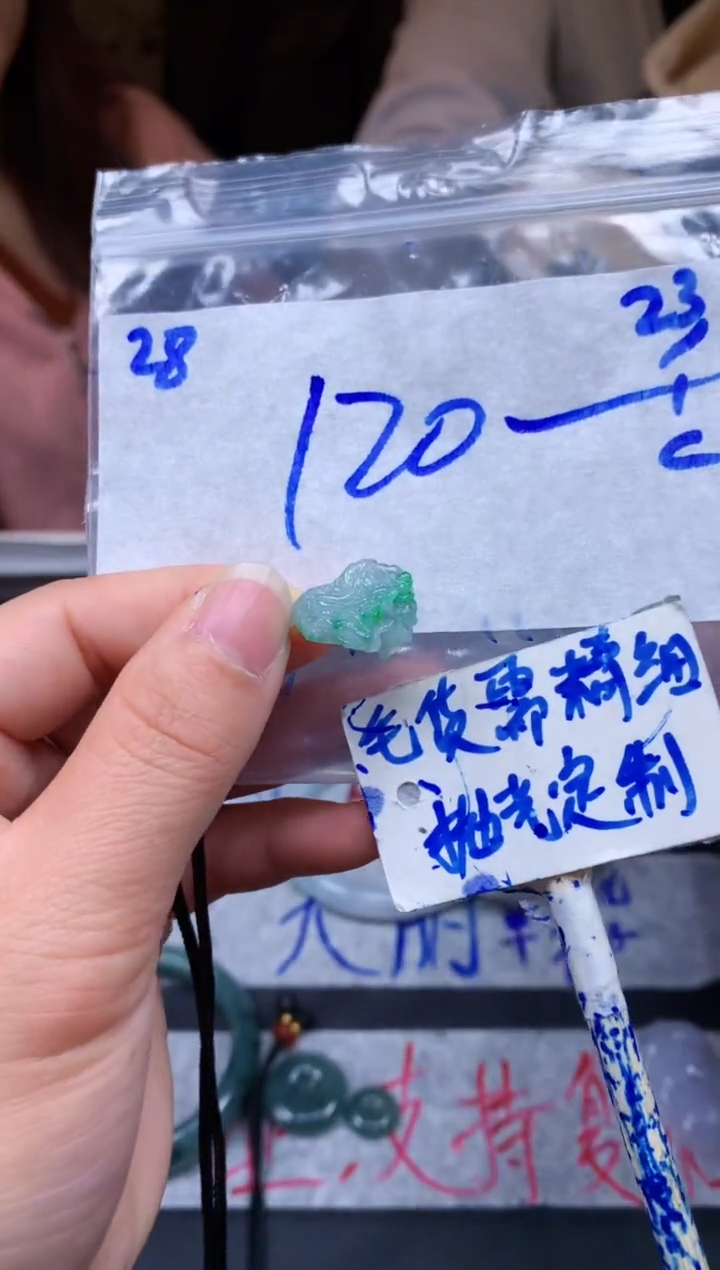 28
23
120
毛货需精细
抛光定制
支持复